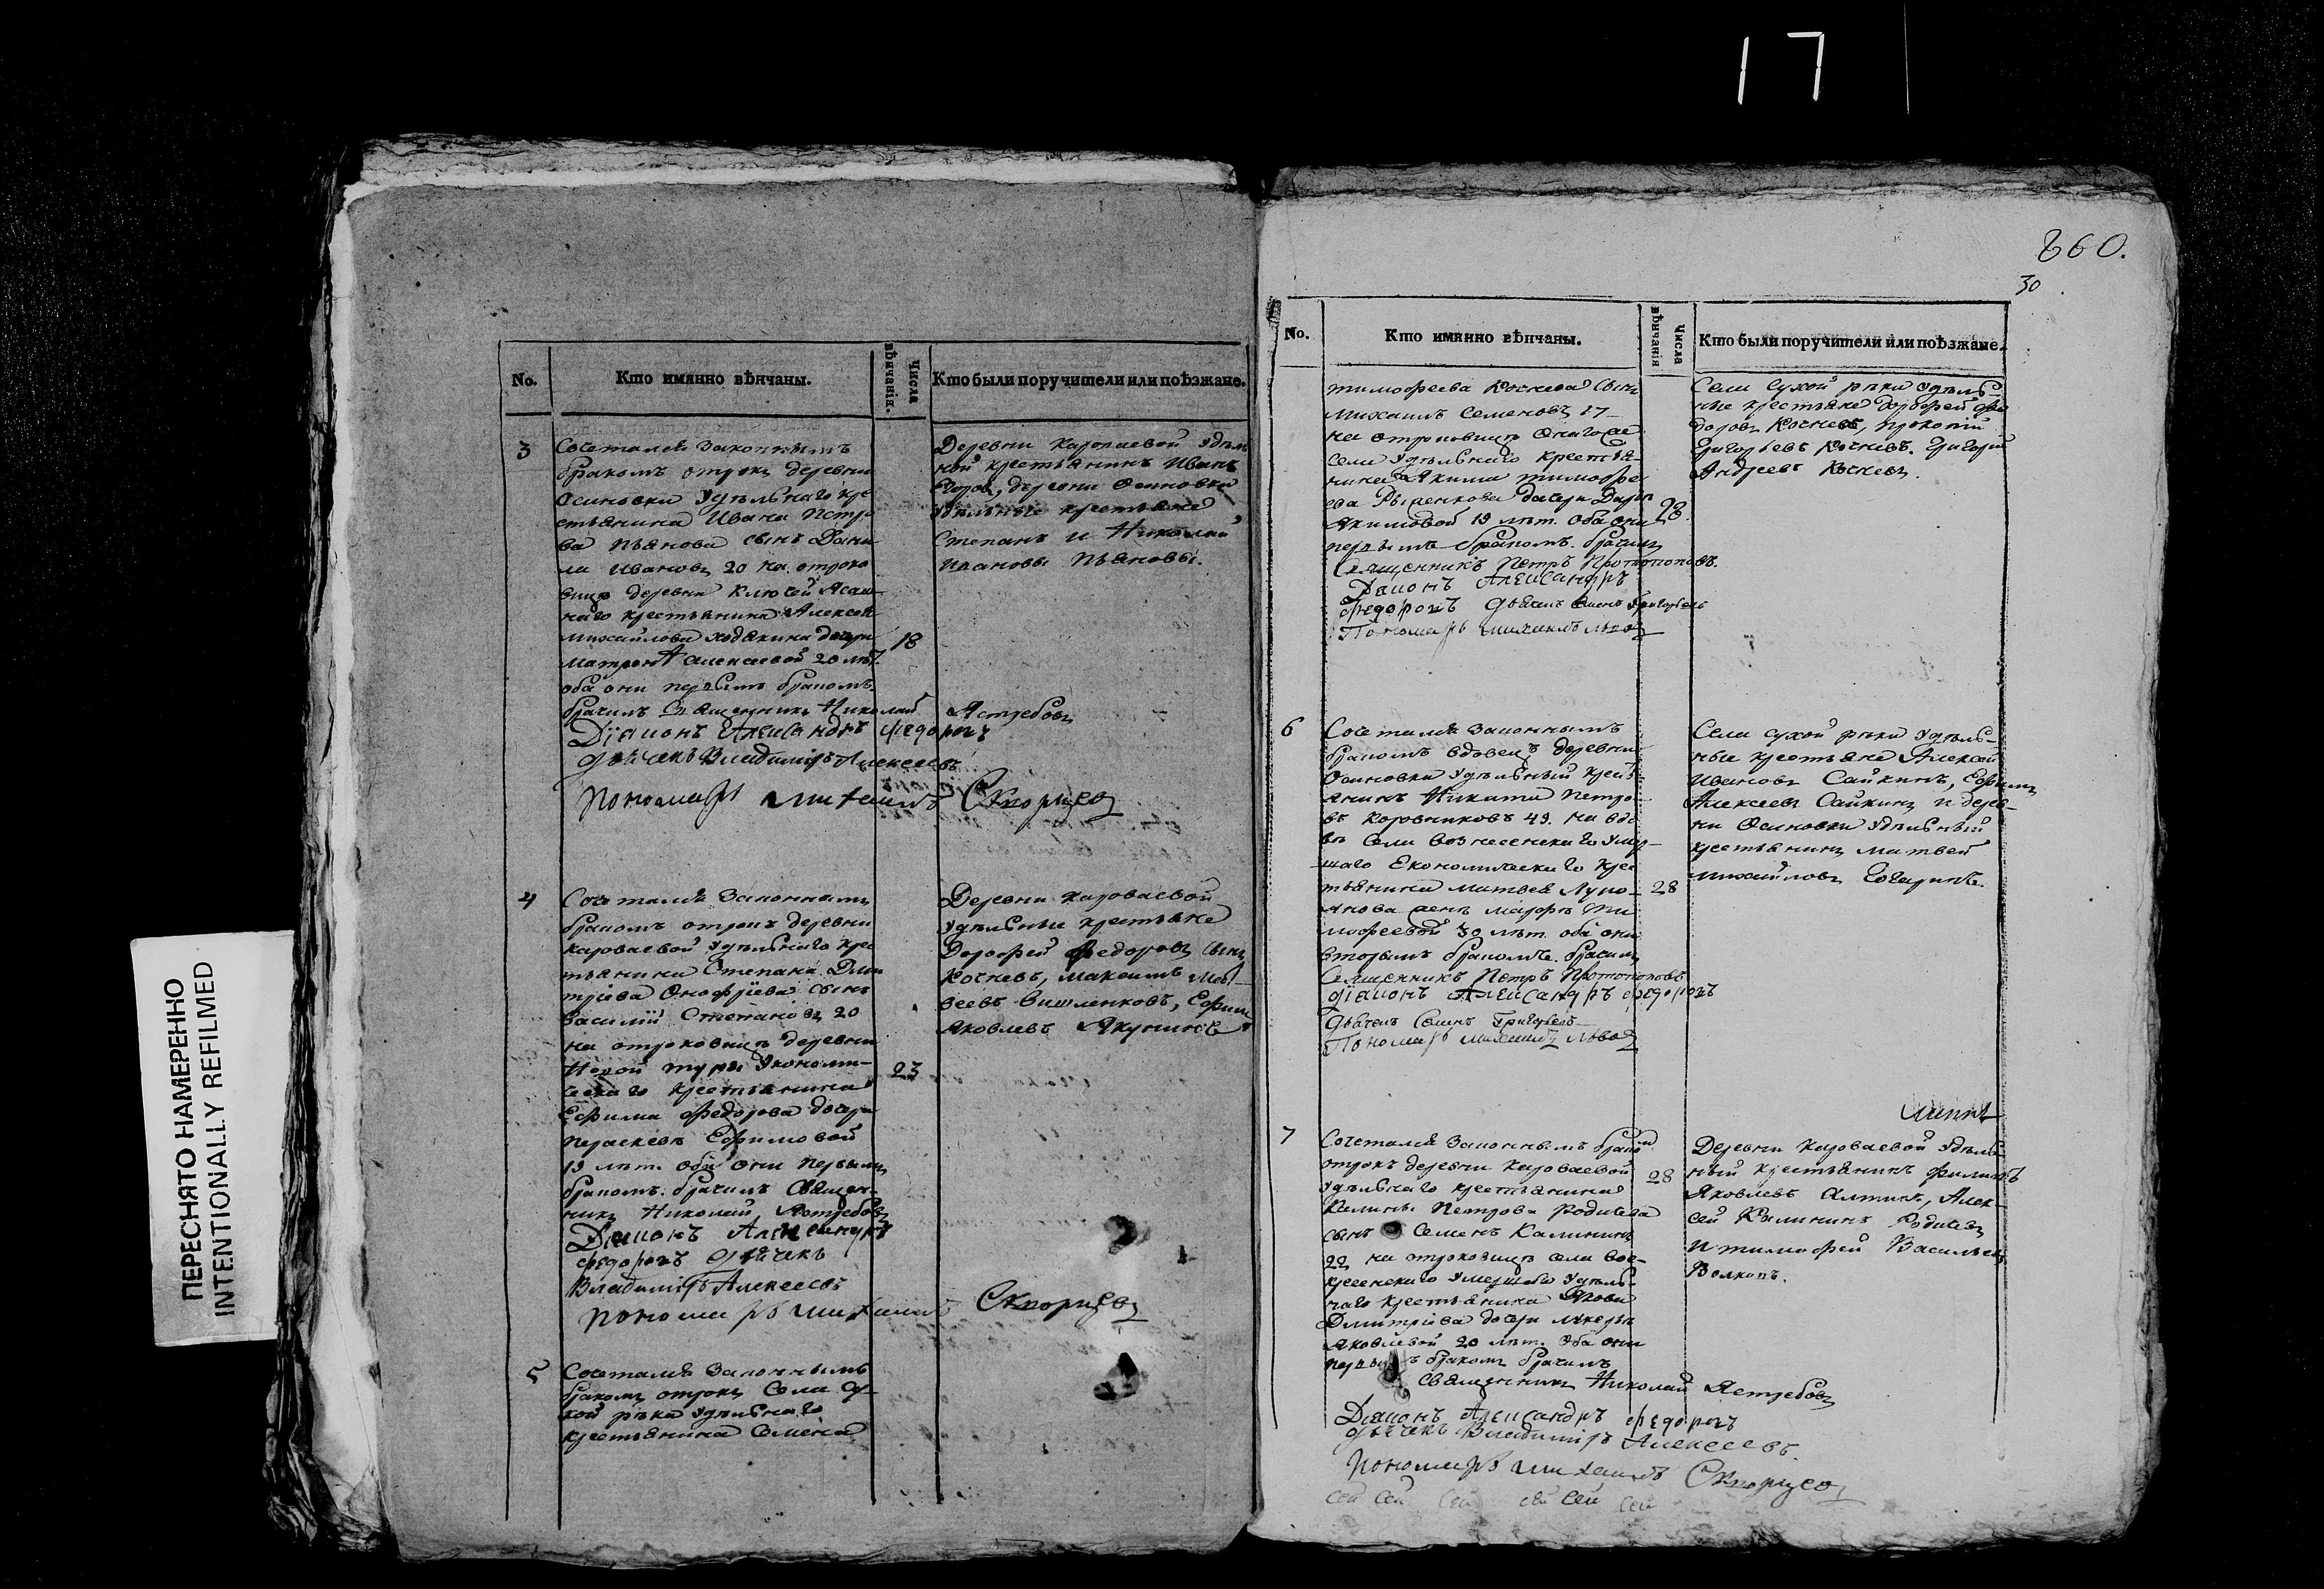 17
ПЕРЕСНЯТО НАМЕРЕННО
INTENTIONALLY REFILMED
No.
Кто имянно вѣнчаны.
Числа вѣнчанія.
Кто были поручители или поѣзжане.
3
Сочетался законнымъ
бракомъ отрокъ деревни
Осиновки Удѣльнаго кре
стьянина Ивана Петро
ва Пьянова сынъ Дани
ла Ивановъ 20 на отроко
вицѣ деревни Ключей Ясаш
наго крестьянина Алексея
Михайлова Ходякина дочери
Матроне Алексеевой 20 лѣт.
оба они первымъ бракомъ.
брачилъ Священникъ Николай Ястребовъ
Діаконъ Александръ Федоровъ
дьячекъ Владиміръ Алексеевъ
пономарь михаилъ Скворцевъ
18
Деревни Короваевой Удѣль
ной крестьянинъ Иванъ
Егоровъ, деревни Осиновки
удѣльные крестьяне
Степанъ и Николай
Ивановы Пьяновы.
4
Сочетался законнымъ
бракомъ отрокъ деревни
Короваевой Удѣльнаго кре
стьянина Степана Дми
тріева Онофріева сынъ
Василій Степановъ 20
на отроковицѣ деревни
туры Экономи-
ческаго крестьянина
Ефима Федорова дочери
Параскевѣ Ефимовой
19 лѣт. оба они первымъ
бракомъ. брачилъ Священ-
никъ Николай Ястребовъ
Діаконъ Александръ
Федоровъ дьячекъ
Владиміръ Алексеевъ
пономарь михаилъ Скворцевъ
23
Деревни Короваевой
удѣльные крестьяне
Дорофей Федоровъ сынъ
Кочневъ, Максимъ Мат-
веевъ Вишленковъ, Ефим
Яковлевъ Якунинъ
5
Сочетался законнымъ
бракомъ отрокъ Села Су-
хой рѣки удѣльнаго
крестьянина Семена
860.
30
No.
Кто имянно вѣнчаны.
Числа вѣнчанія
Кто были поручители или поѣзжане.
тимофеева Кочнева сынъ
Михаилъ Семеновъ 17
на отроковицѣ онаго же
села Удѣльнаго крестья-
нина Якима тимофе
ева дочери Дарье
Якимовой 19 лѣт. оба они
первымъ бракомъ. брачилъ
Священникъ Петръ Протопоповъ.
Діаконъ Александръ
федоровъ дьячекъ Семенъ Григорьевъ
Пономарь михаилъ львовъ
28.
Села Сухой рѣки удѣль-
ные крестьяне Дорофей Фе
доровъ Кочневъ, Прокопій
Григорьевъ Кочневъ. Григорій
Андреевъ Кочневъ.
6
Сочетался законнымъ
бракомъ вдовецъ деревни
Осиновки удѣльный крест
янинъ Никита Петро-
въ Коровниковъ 49. на вдо
вѣ села Вознесенскаго умер-
шаго Економическаго крес
тьянина Матвея Луко-
янова женѣ Марфѣ Ти
мофеевой 30 лѣт. оба они
вторымъ бракомъ. брачилъ
Священникъ Петръ Протопоповъ
діаконъ Александръ федоровъ
Дьячекъ Семенъ Григорьевъ
Пономарь михаилъ львовъ
28
Села Сухой рѣки удѣль-
ные крестьяне Алексей
Ивановъ Сайкинъ, Ефимъ
Алексеевъ Сайкинъ и дерев-
ни Осиновки удѣльный
крестьянинъ Матвей
Михайловъ
7
Сочетался законнымъ браком
отрокъ деревни Короваевой
удѣльнаго крестьянина
Калины Петрова Родичева
сынъ Семенъ Калининъ
22 на отроковицѣ села Вос-
кресенскаго умершаго Удѣль-
наго крестьянина Якова
Димитріева дочери Лукерье
Яковлевой 20 лѣт. оба они
первымъ бракомъ брачилъ
Священникъ Николай Ястребовъ
Діаконъ Александръ Федоровъ
дьячекъ Владиміръ Алексеевъ.
пономарь михаилъ Скворцевъ
сей сей сей сей сей сей
28
Деревни Короваевой Удѣль
ный крестьянинъ Филипъ
Яковлевъ Алтинъ, Алек-
сей Калининъ Родичевъ
и тимофей Васильевъ
Волковъ.